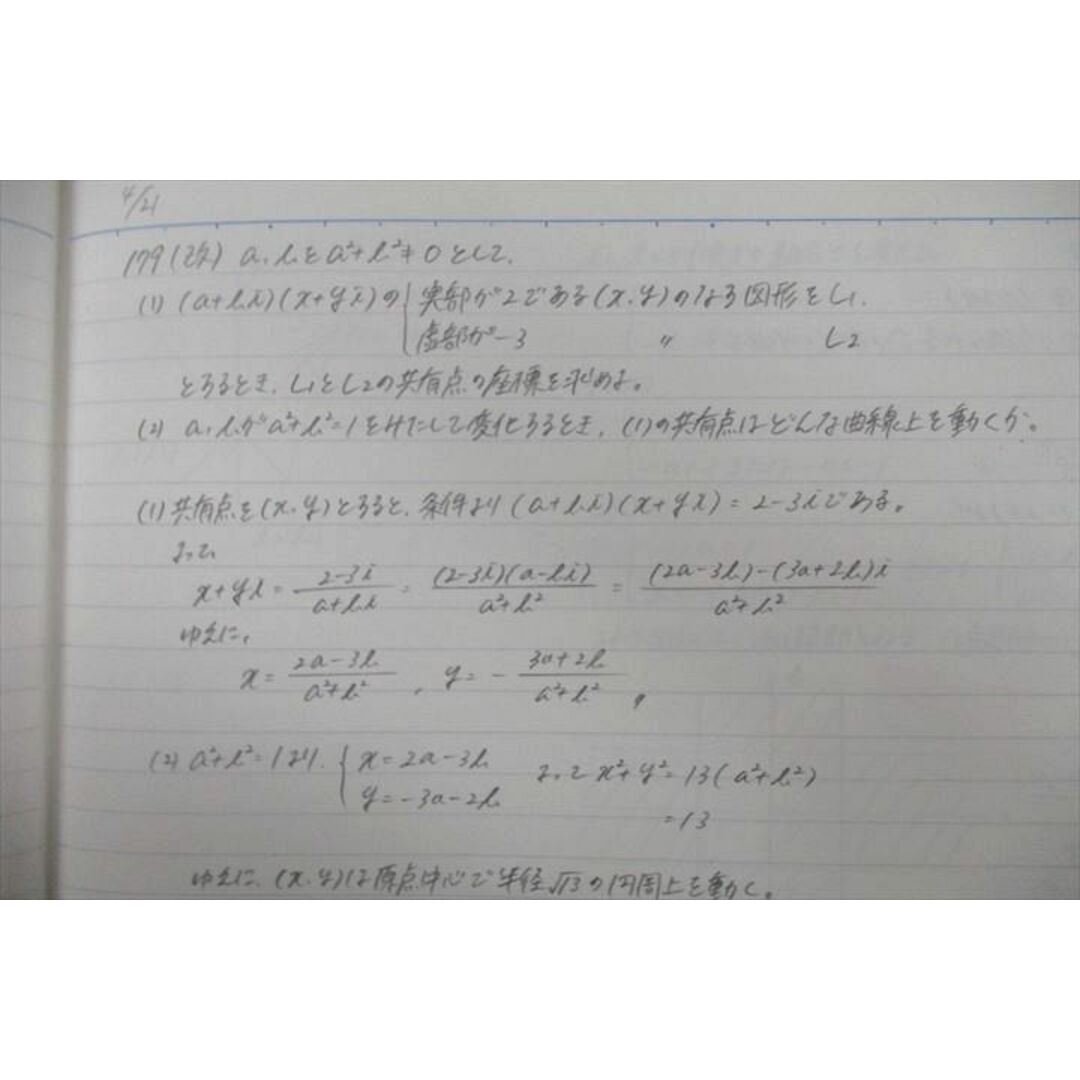 4/21
179(改) a, bをa²+b²≠0として,
(1) (a+bi)(x+yi)の{実部が2である(x, y)のなす図形をL₁,
虚部が-3 〃 L₂
とするとき, L₁とL₂の共有点の座標を求めよ。
(2) a, bがa²+b²=1をみたして変化するとき, (1)の共有点はどんな曲線上を動くか。
(1) 共有点を(x, y)とすると, 条件より(a+bi)(x+yi)=2-3iである。
よって
x+yi = (2-3i)/(a+bi) = (2-3i)(a-bi)/(a²+b²) = ((2a-3b)-(3a+2b)i)/(a²+b²)
ゆえに,
x = (2a-3b)/(a²+b²) , y = -(3a+2b)/(a²+b²) 〃
(2) a²+b²=1より, {x=2a-3b よって x²+y²=13(a²+b²)
y=-3a-2b =13
ゆえに, (x, y)は原点中心で半径√13の円周上を動く。